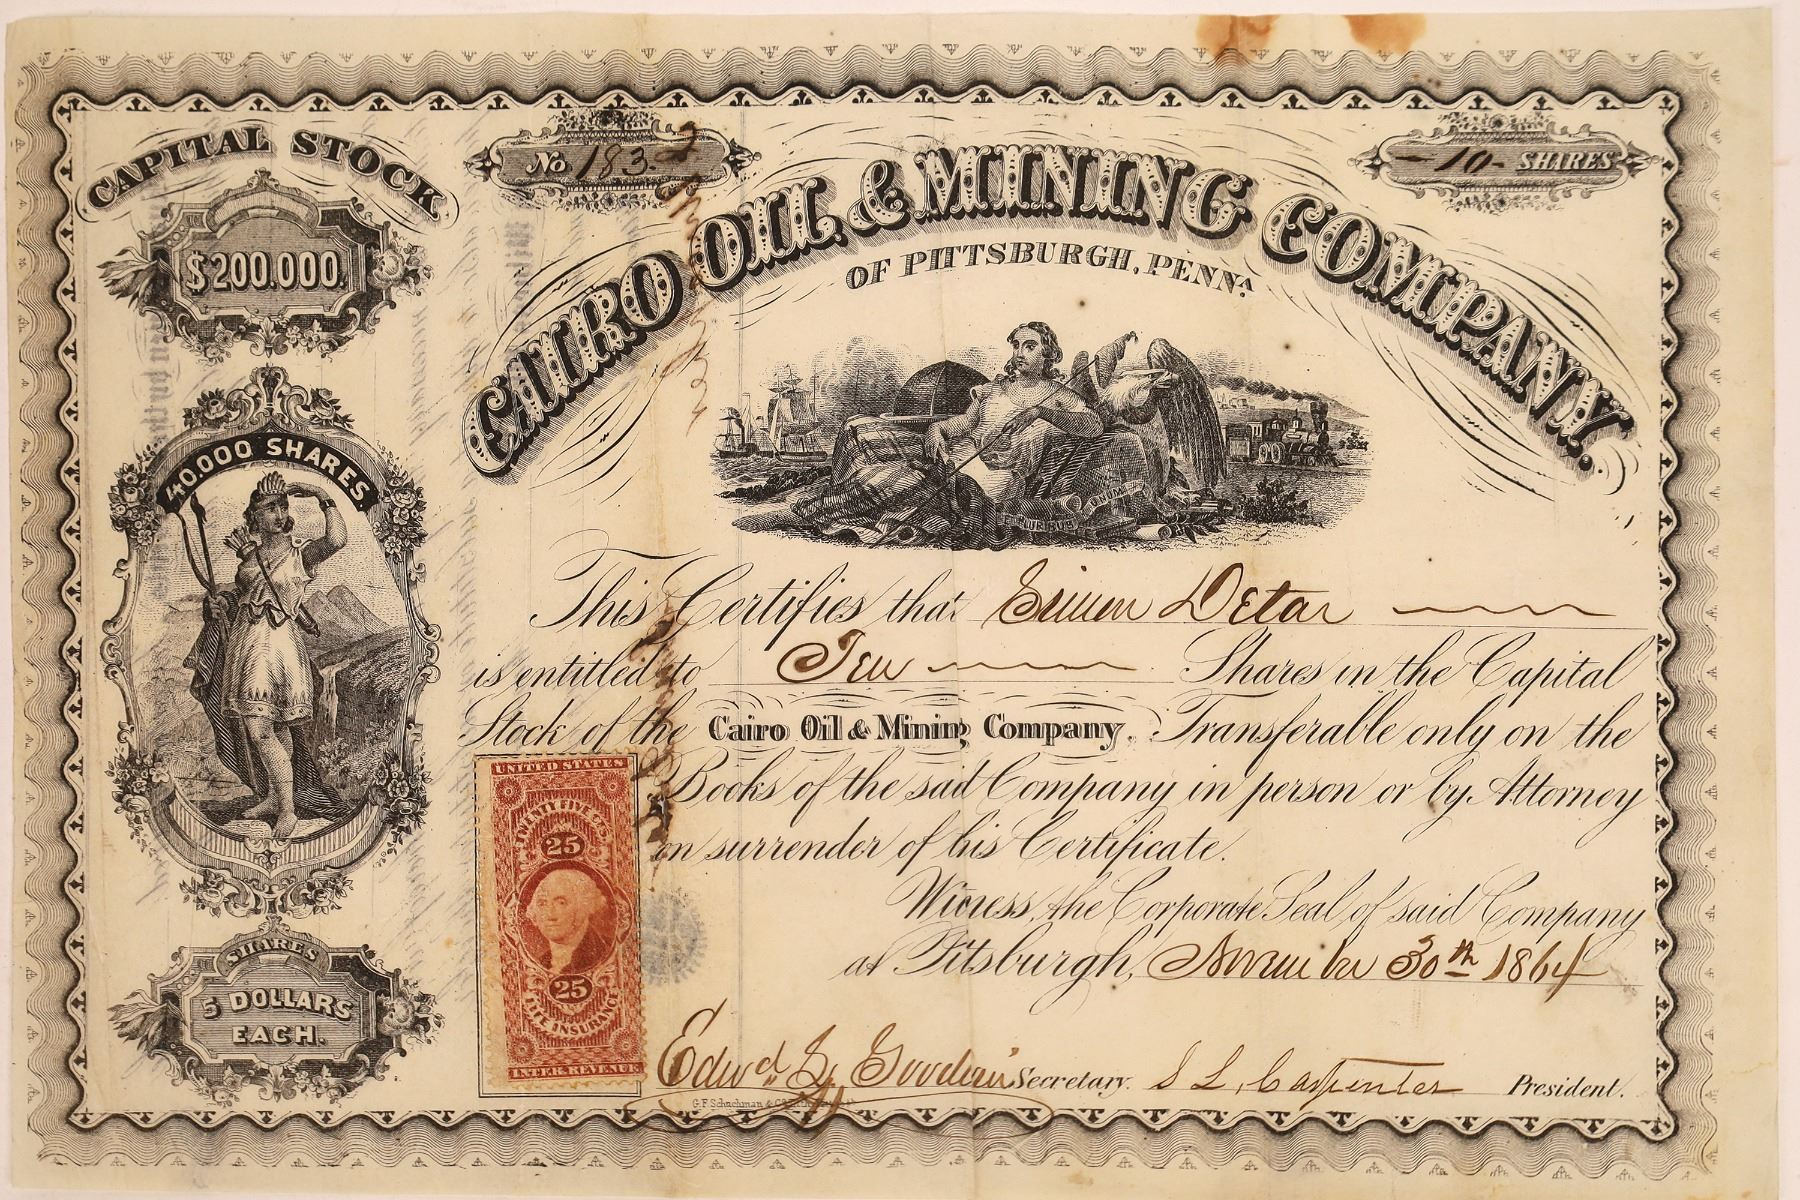 CAPITAL STOCK
$200.000.
40.000 SHARES
SHARES
5 DOLLARS
EACH.
No 183.
-10- SHARES
CAIRO OIL & MINING COMPANY.
OF PITTSBURGH, PENNA.
E PLURIBUS UNUM
This Certifies that Simon Detar
is entitled to Ten Shares in the Capital
Stock of the Cairo Oil & Mining Company. Transferable only on the
Books of the said Company in person or by Attorney
on surrender of this Certificate.
Witness, the Corporate Seal of said Company
at Pittsburgh, November 30th 1864
UNITED STATES
TWENTY FIVE CTS.
25
25
LIFE INSURANCE
INTER. REVENUE
Edwd Secretary. S L, Carpenter President.
G.F. Schuchman & Co.